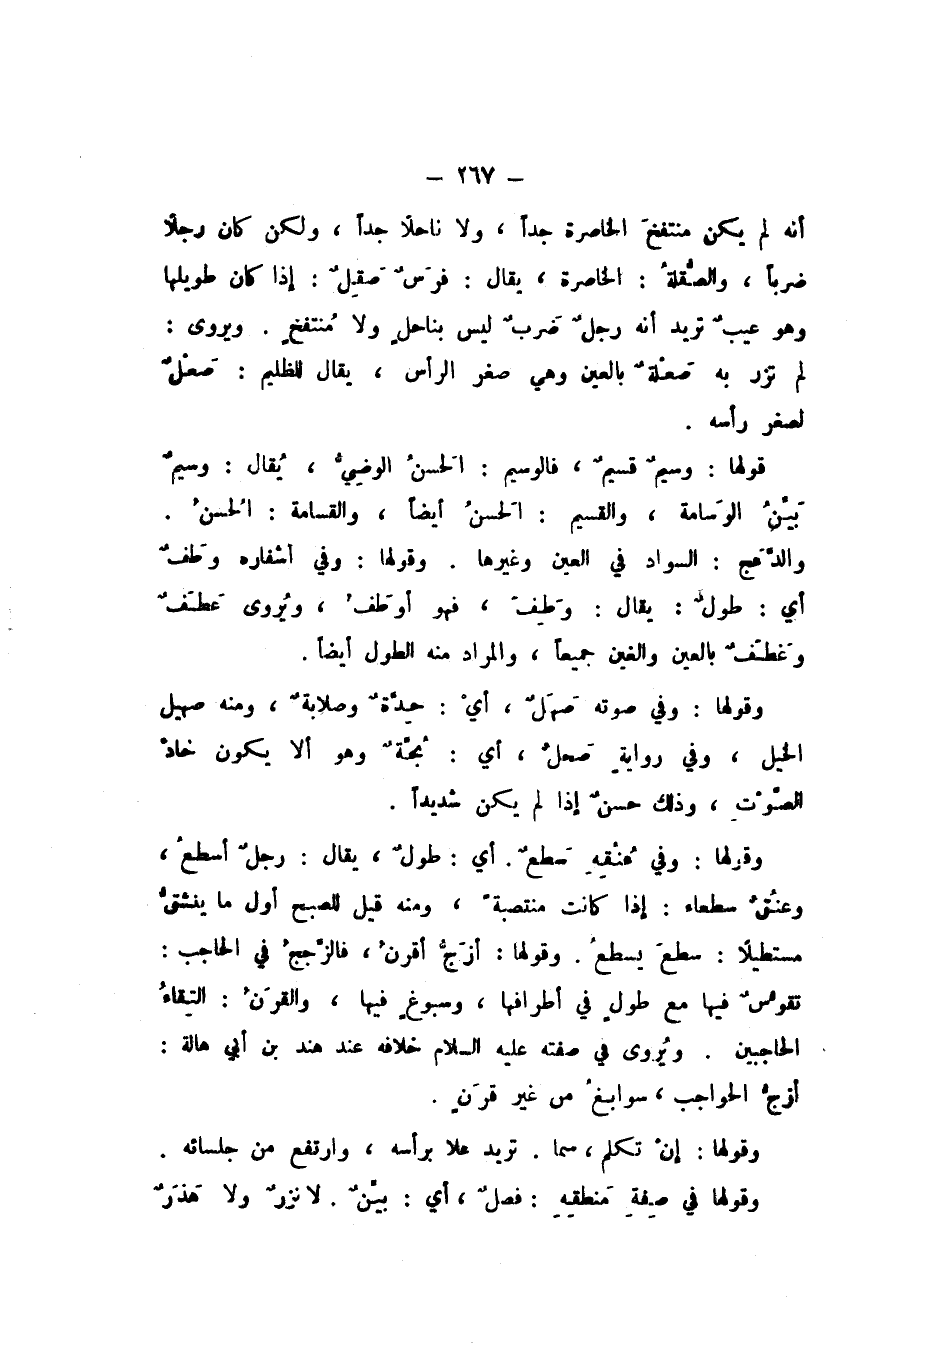 – ٢٦٧ –
أنه لم يكن منتفخَ الخاصرة جداً ، ولا ناحلًا جداً ، ولكن كان رجلًا
ضرباً ، والصُّقلةُ : الخاصرة ، يقال : فرَسٌ صَقِلٌ : إذا كان طويلها
وهو عيبٌ تريد أنه رجلٌ ضَربٌ ليس بناحلٍ ولا مُنتفخٍ . ويروى :
لم تزْر به صَعْلة ٌ بالعين وهي صغر الرأس ، يقال للظليم : صَعْلٌ
لصغر رأسه .
قولها : وسيمٌ قسيمٌ ، فالوسيم : الَحسنُ الوضِيءُ ، يُقال : وسيمٌ
بَيِّنُ الوَسامة ، والقسيم : الَحسنُ أيضاً ، والقسامة : الُحسنُ .
والدَّعَج : السواد في العين وغيرها . وقولها : وفي أشفاره وَطفٌ
أي : طولٌ : يقال : وَطِفَ ، فهو أوَطَفُ ، ويُروى عَطَفٌ
وَغَطَفٌ بالعين والغين جميعاً ، والمراد منه الطول أيضاً .
وقولها : وفي صوته صَهَلٌ ، أيْ : حِدَّة ٌ وصلابة ٌ ، ومنه صهيل
الخيل ، وفي روايةٍ صَحلٌ ، أي : بُحَّة ٌ وهو ألا يكون حادَّ
الصَّوْتِ ، وذلك حسنٌ إذا لم يكن شديداً .
وقولها : وفي عُنْقِهِ سَطعٌ . أي : طولٌ ، يقال : رجلٌ أسطعُ ،
وعنُقٌ سطعاء : إذا كانت منتصبة ً ، ومنه قيل للصبح أول ما ينشقُّ
مستطيلًا : سطعَ يسطعُ . وقولها : أزَجُّ أقرنُ ، فالزَّججُ في الحاجب :
تقوسٌ فيها مع طولٍ في أطرافها ، وسبوغٍ فيها ، والقرَنُ : التقاءُ
الحاجبين . ويُروى في صفته عليه السلام خلافه عند هند بن أبي هالة :
أزجُّ الحواجب ، سوابغُ من غير قرَنٍ .
وقولها : إنْ تكلم ، سما . تريد علا برأسه ، وارتفع من جلسائه .
وقولها في صِفةِ مَنطقِهِ : فصلٌ ، أي : بيِّنٌ . لا نزرٌ ولا هَذَرٌ